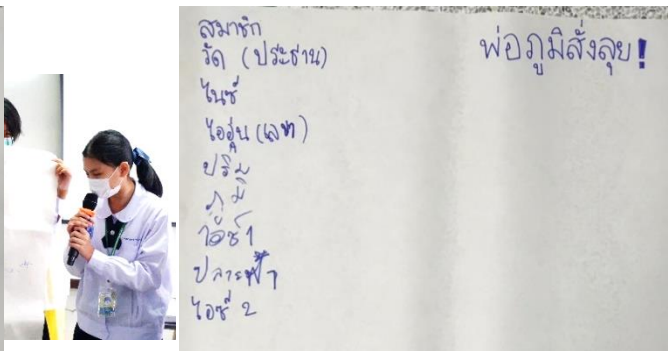 สมาชิก
วัด (ประธาน)
ไนซ์
ไออุ่น (เลขา)
ปริม
ภูมิ
ไอซ์ 1
ปลายฟ้า
ไอซ์ 2
พ่อภูมิสั่งลุย!